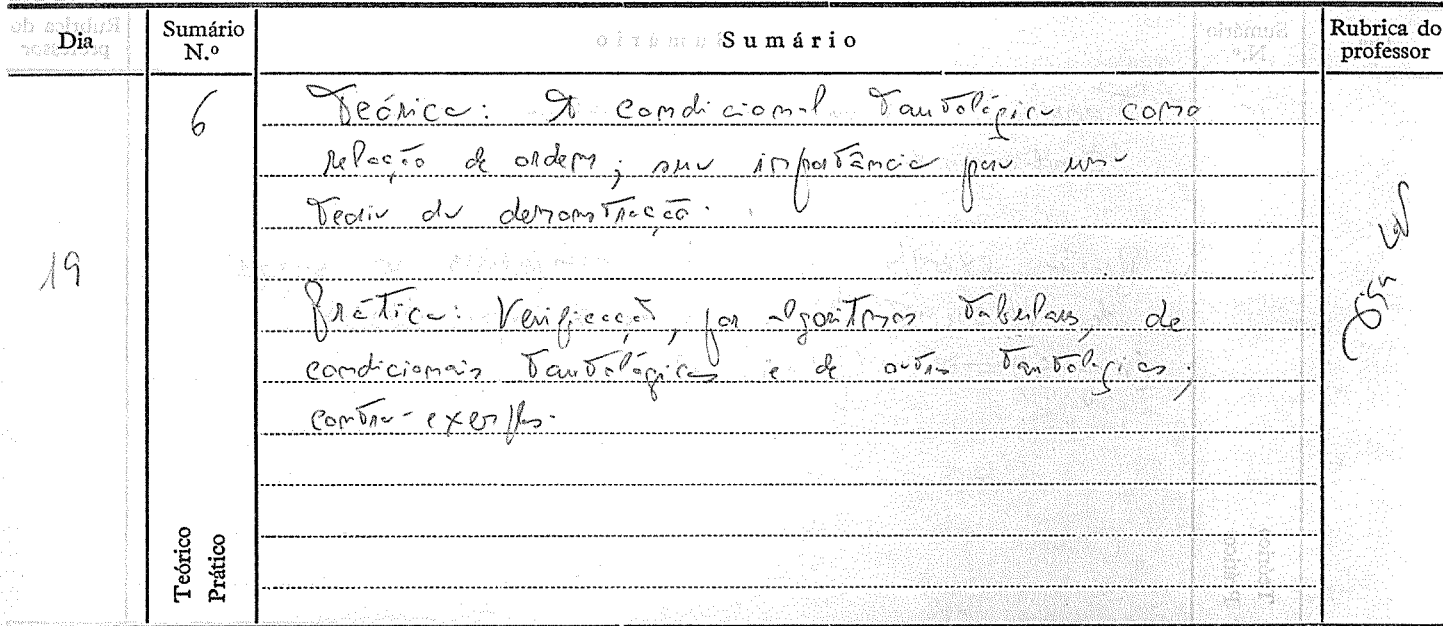 Dia
Sumário N.º
Sumário
Rubrica do professor
19
6
Teórica: A condicional tautológica como
relação de ordem; sua importância para uma
teoria da demonstração.
Prática: Verificação, por algoritmos tabulares, de
condicionais tautológicas e de outras tautologias;
contra-exemplos.
Teórico
Prático